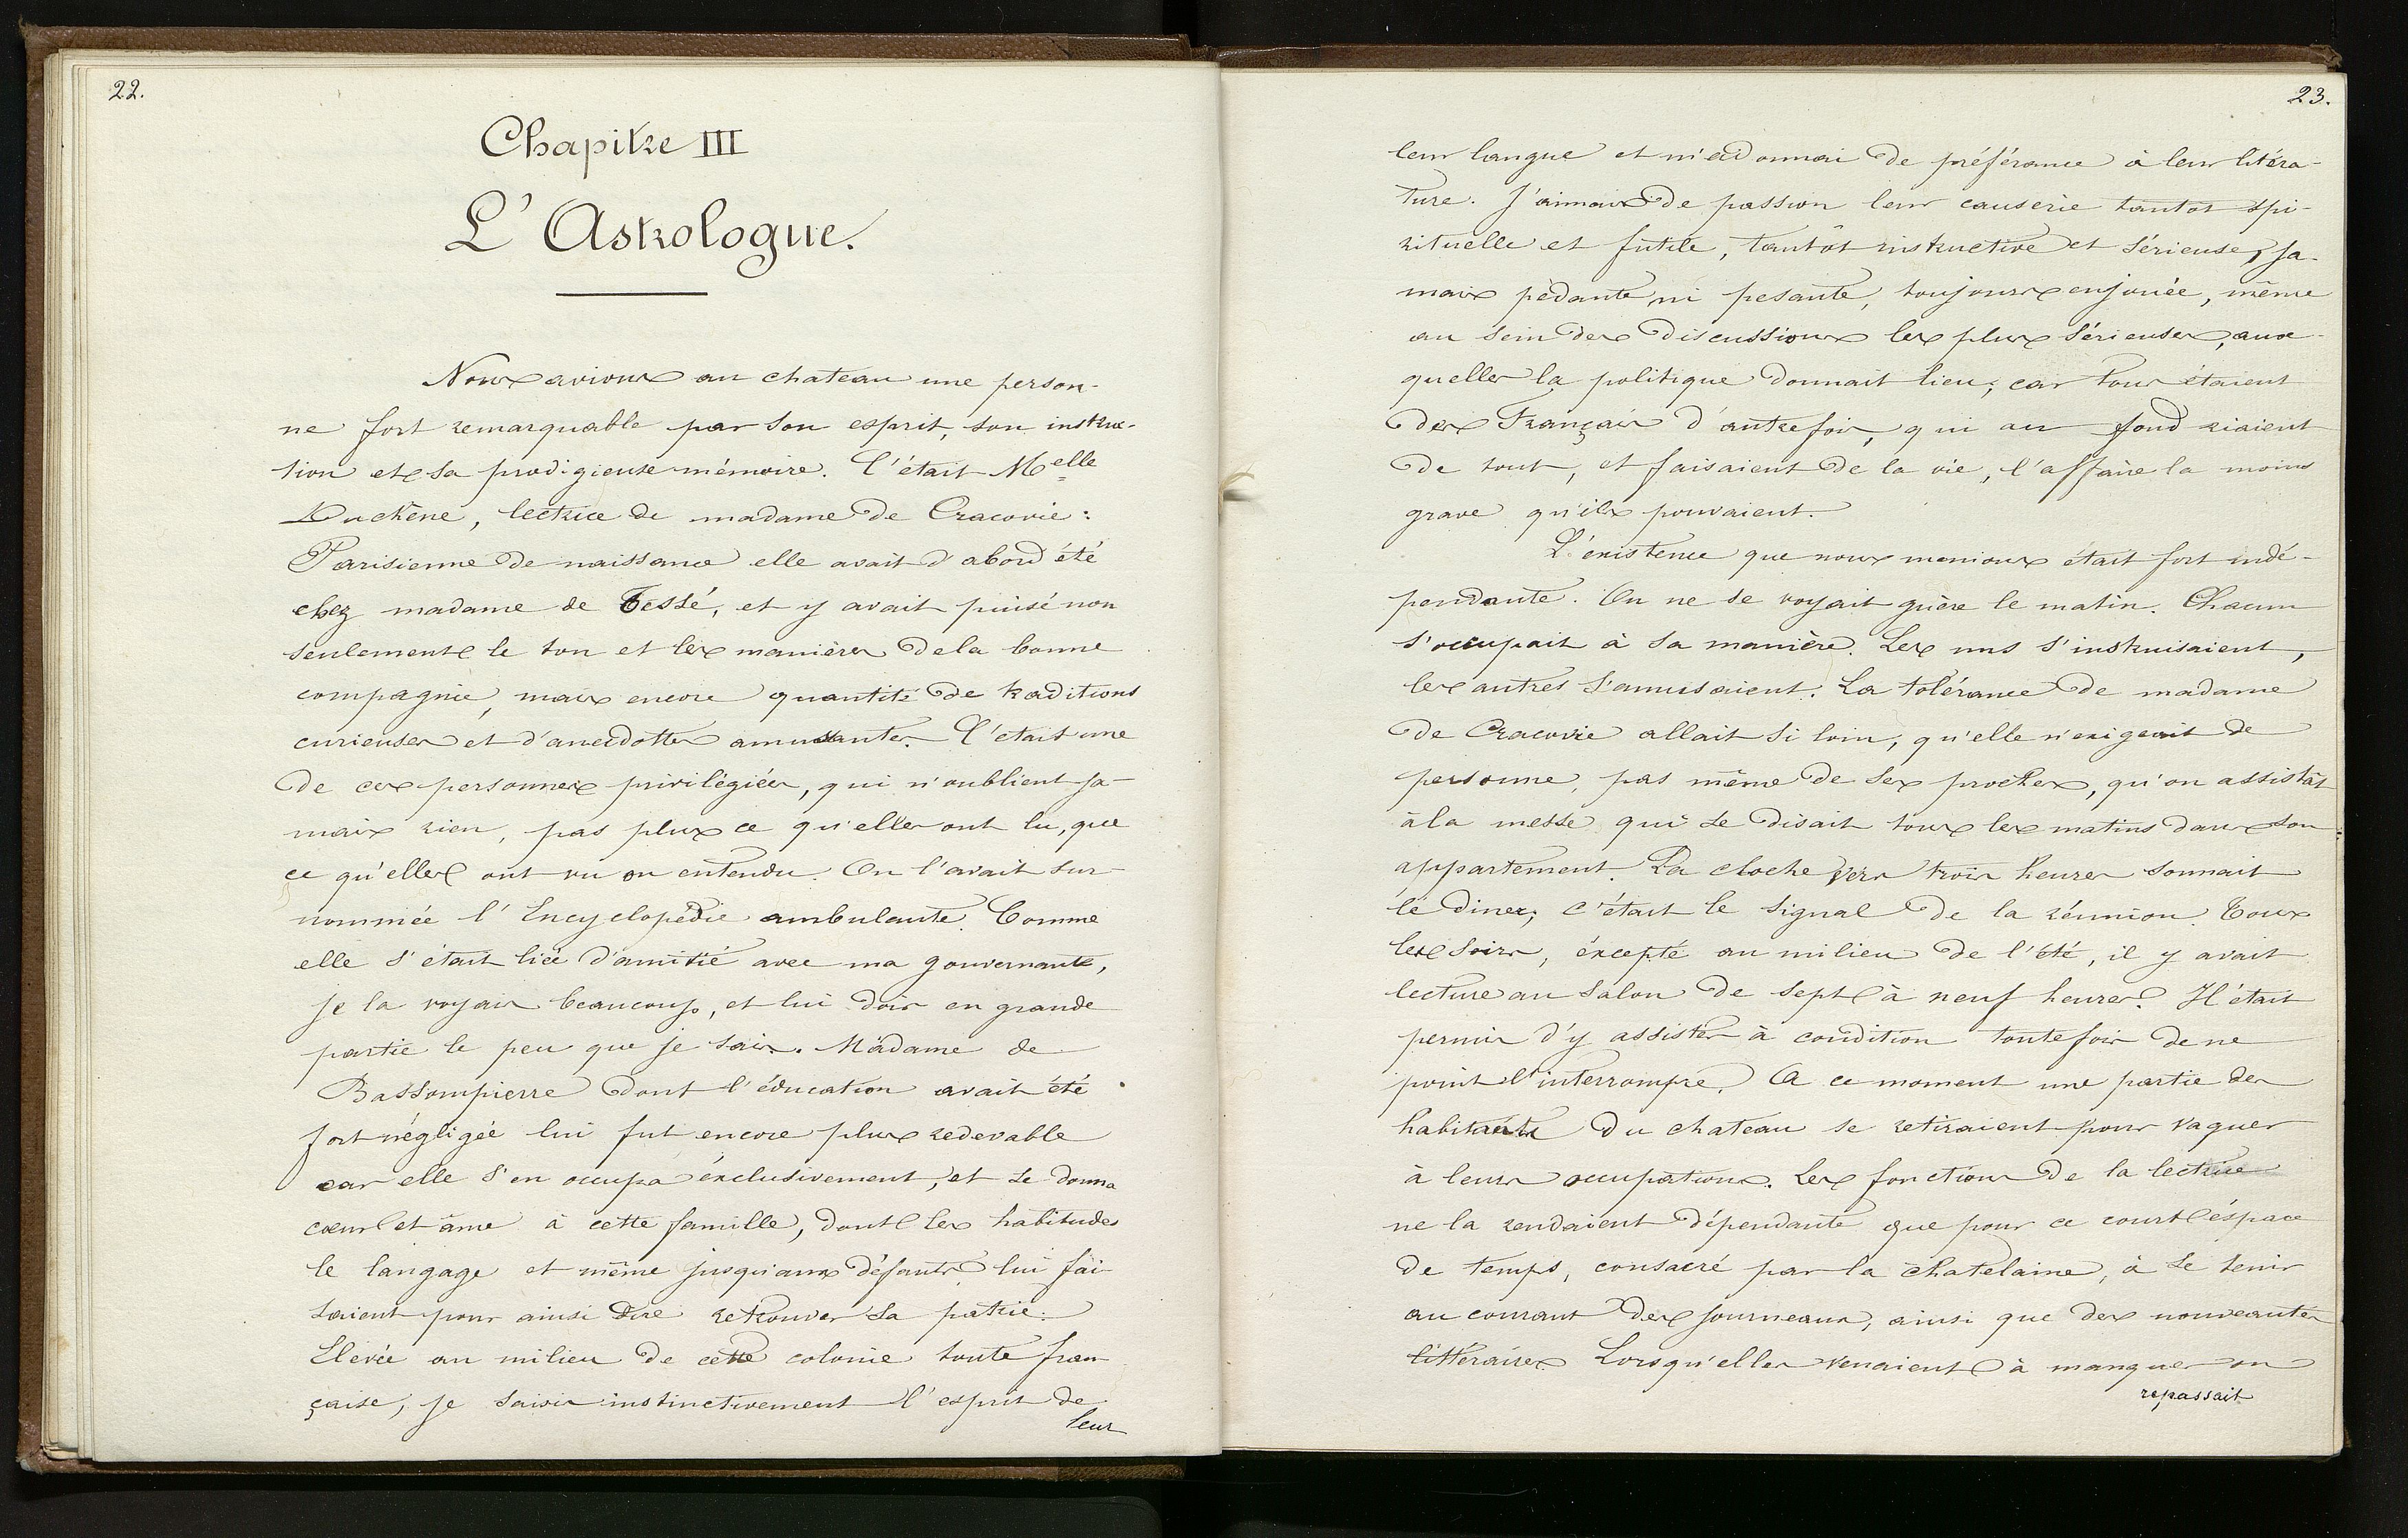 22.
Chapitre III
L'Astrologue.
Nous avions au chateau une person-
ne fort remarquable par son esprit, son instruc-
tion et sa prodigieuse mémoire. C'était Melle
Duchêne, lectrice de madame de Cracovie:
Parisienne de naissance elle avait d'abord été
chez madame de Tessé, et y avait puisé non
seulement le ton et les manières de la bonne
compagnie, mais encore quantité de traditions
curieuses et d'anecdottes amusantes. C'était une
de ces personnes privilégiées, qui n'oublient ja-
mais rien, pas plus ce qu'elles ont lu, que
ce qu'elles ont vu ou entendu. On l'avait sur-
nommée l'Encyclopédie ambulante. Comme
elle s'était liée d'amitié avec ma gouvernante,
je la voyais beaucoup, et lui dois en grande
partie le peu que je sais. Madame de
Bassompierre dont l'éducation avait été
fort négligée lui fut encore plus redevable
car elle s'en occupa éxclusivement, et se donna
cœur et âme à cette famille, dont les habitudes
le langage et même jusqu'aux défauts lui fai-
saient pour ainsi dire retrouver sa patrie.
Elevée au milieu de cette colonie toute fran-
çaise, je saisis instinctivement l'esprit de
leur
23.
leur langue et m'adonnai de préférance à leur litéra-
ture. J'aimais de passion leur causerie tantôt spi-
rituelle et futile, tantôt instructive et sérieuse, ja-
mais pédante ni pesante, toujours enjouée, même
au sein des discussions les plus sérieuses, aux-
quelles la politique donnait lieu; car tous étaient
des Français d'autrefois, qui au fond riaient
de tout, et faisaient de la vie, l'affaire la moins
grave qu'ils pouvaient.
L'éxistence que nous menions était fort indé-
pendante. On ne se voyait guère le matin. Chacun
s'occupait à sa manière. Les uns s'instruisaient,
les autres s'amusaient. La tolérance de madame
de Cracovie allait si loin, qu'elle n'exigeait de
personne, pas même de ses proches, qu'on assistât
à la messe qui se disait tous les matins dans son
appartement. La cloche vers trois heures sonnait
le diner; c'était le signal de la réunion. Tous
les soirs, éxcepté au milieu de l'été, il y avait
lecture au salon de sept à neuf heures. Il était
permis d'y assister à condition toutefois de ne
point l'interrompre. A ce moment une partie des
habitants du chateau se retiraient pour vaquer
à leurs occupations. Les fonctions de la lectrice
ne la rendaient dépendante que pour ce court éspace
de temps, consacré par la chatelaine, à se tenir
au courant des journeaux, ainsi que des nouveautés
littéraires. Lorsqu'elles venaient à manquer on
repassait